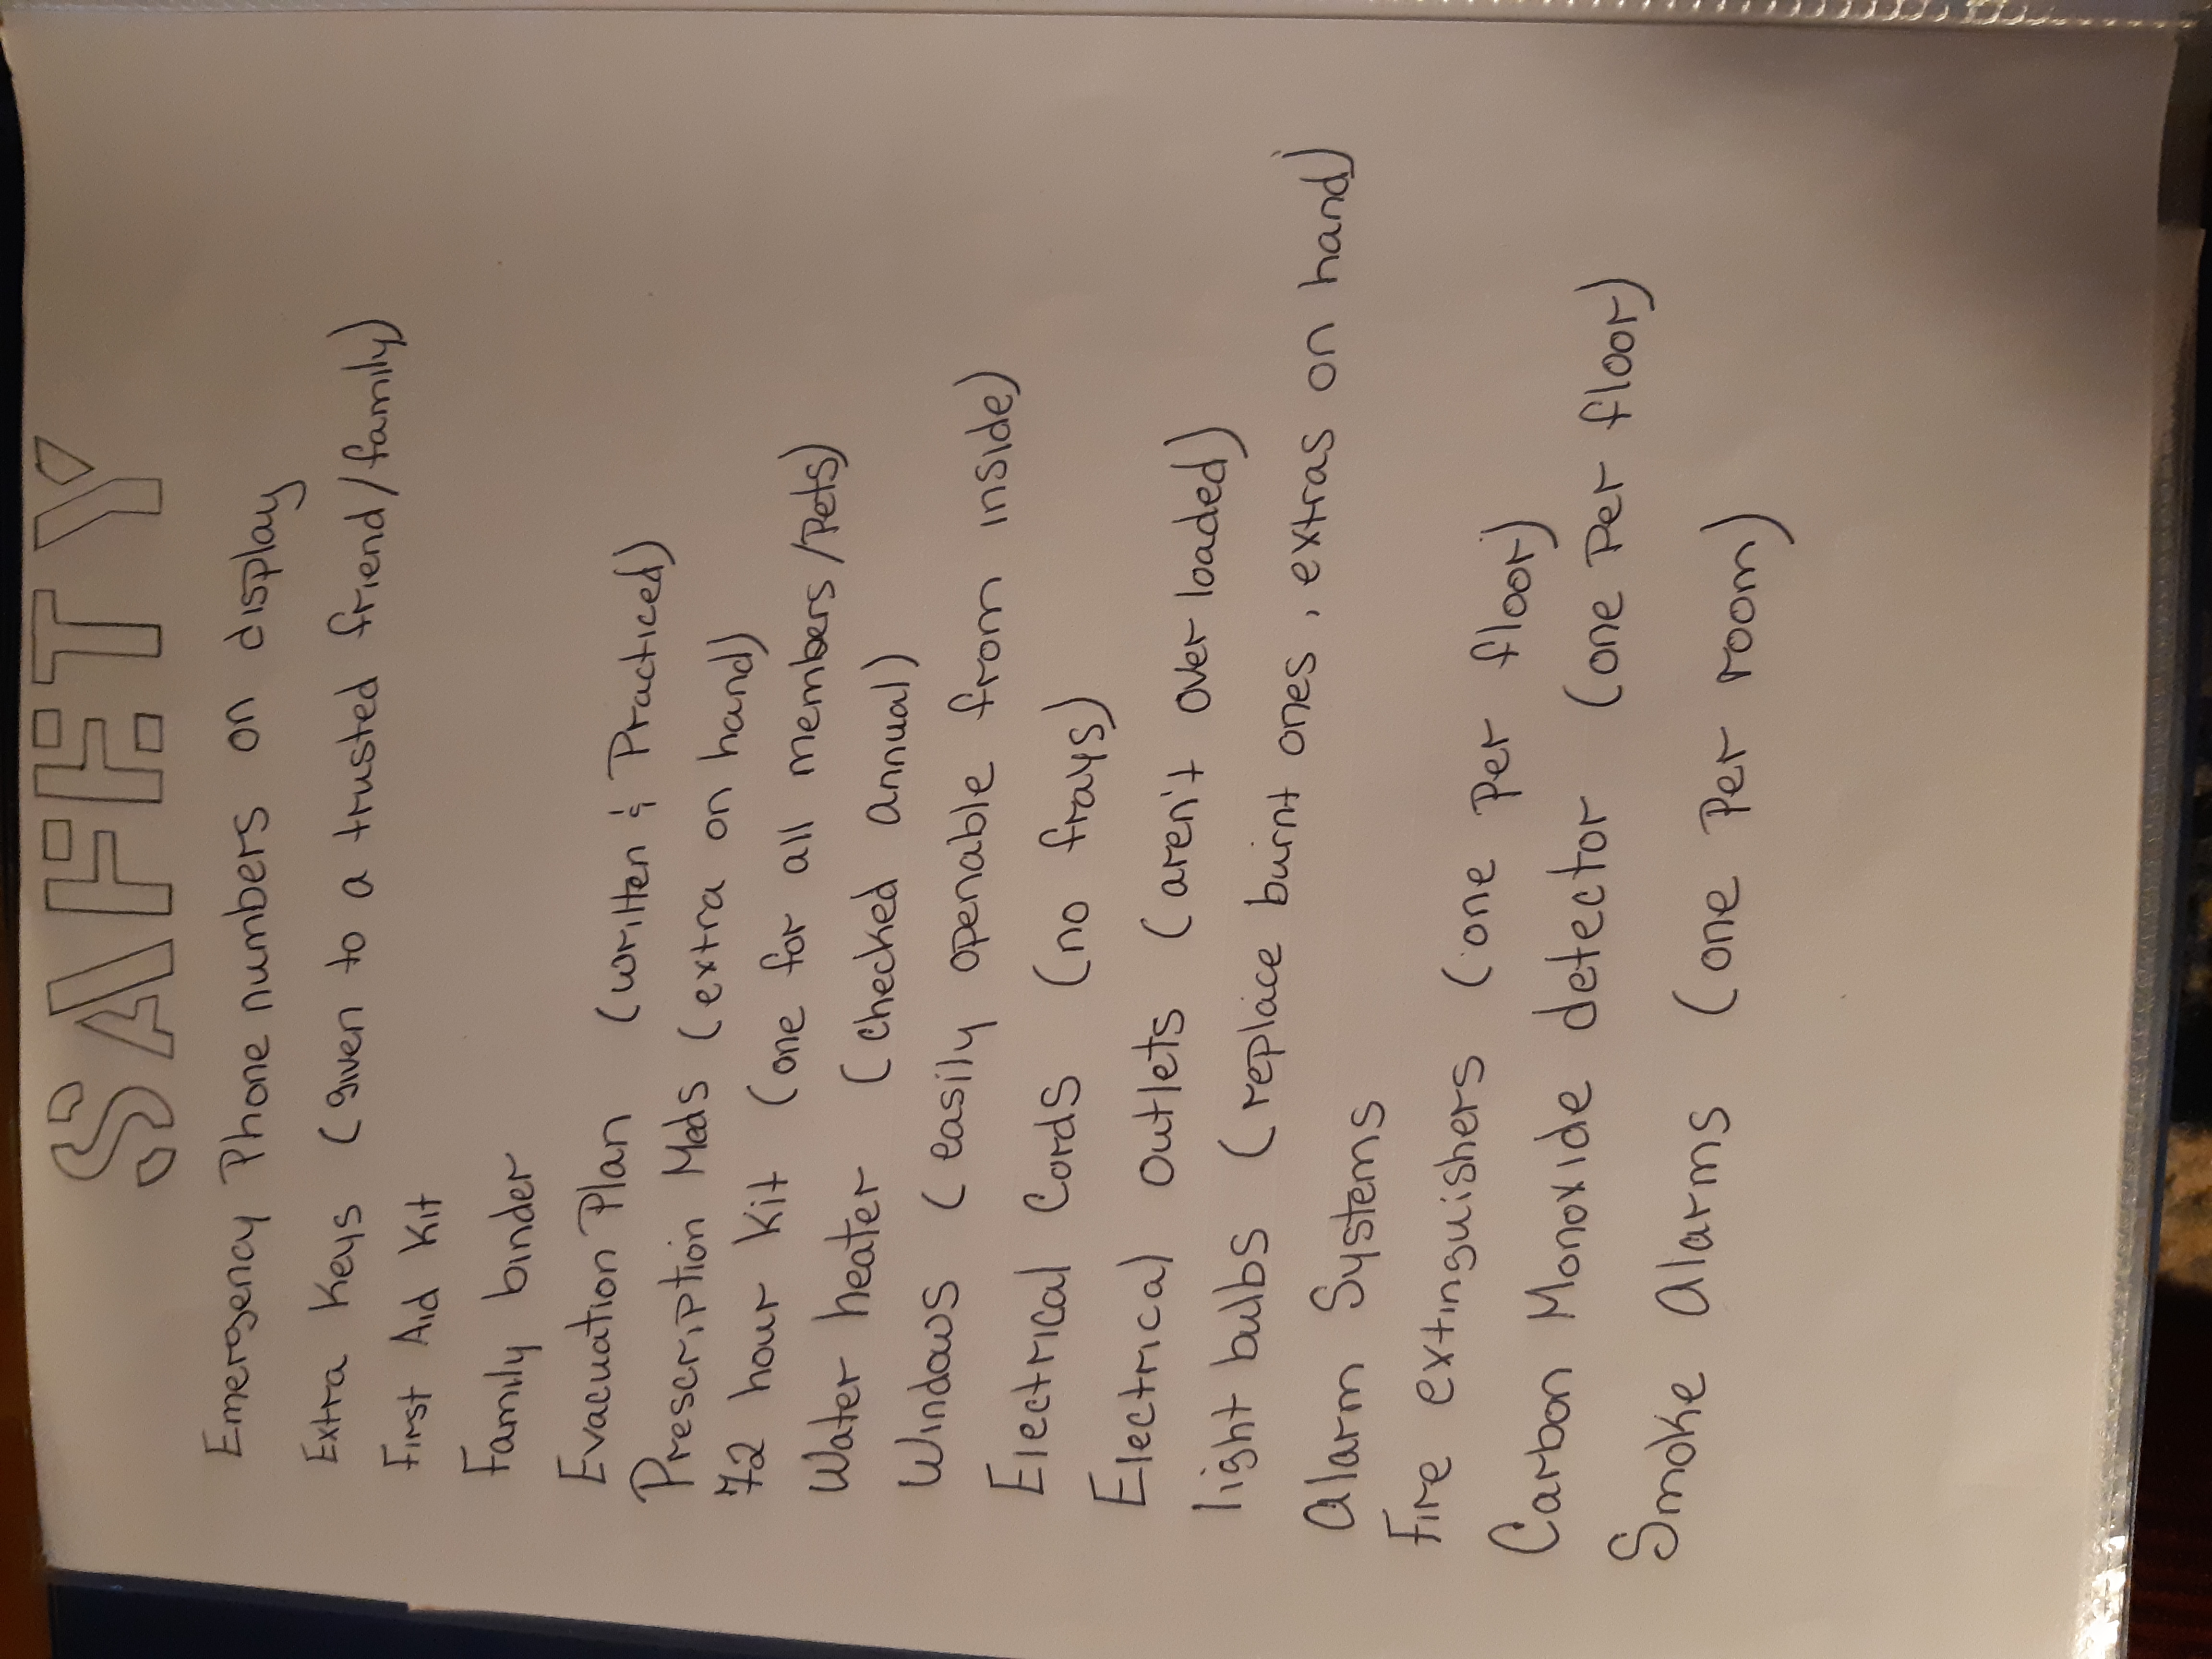 SAFETY
Emergency Phone numbers on display
Extra Keys (given to a trusted friend/family)
First Aid Kit
Family binder
Evacuation Plan (written & Practiced)
Prescription Meds (extra on hand)
72 hour Kit (one for all members/Pets)
Water heater (checked annual)
Windows (easily openable from inside)
Electrical Cords (no frays)
Electrical Outlets (aren't over loaded)
light bulbs (replace burnt ones, extras on hand)
Alarm Systems
Fire extinguishers (one Per floor)
Carbon Monoxide detector (one Per floor)
Smoke Alarms (one Per room)